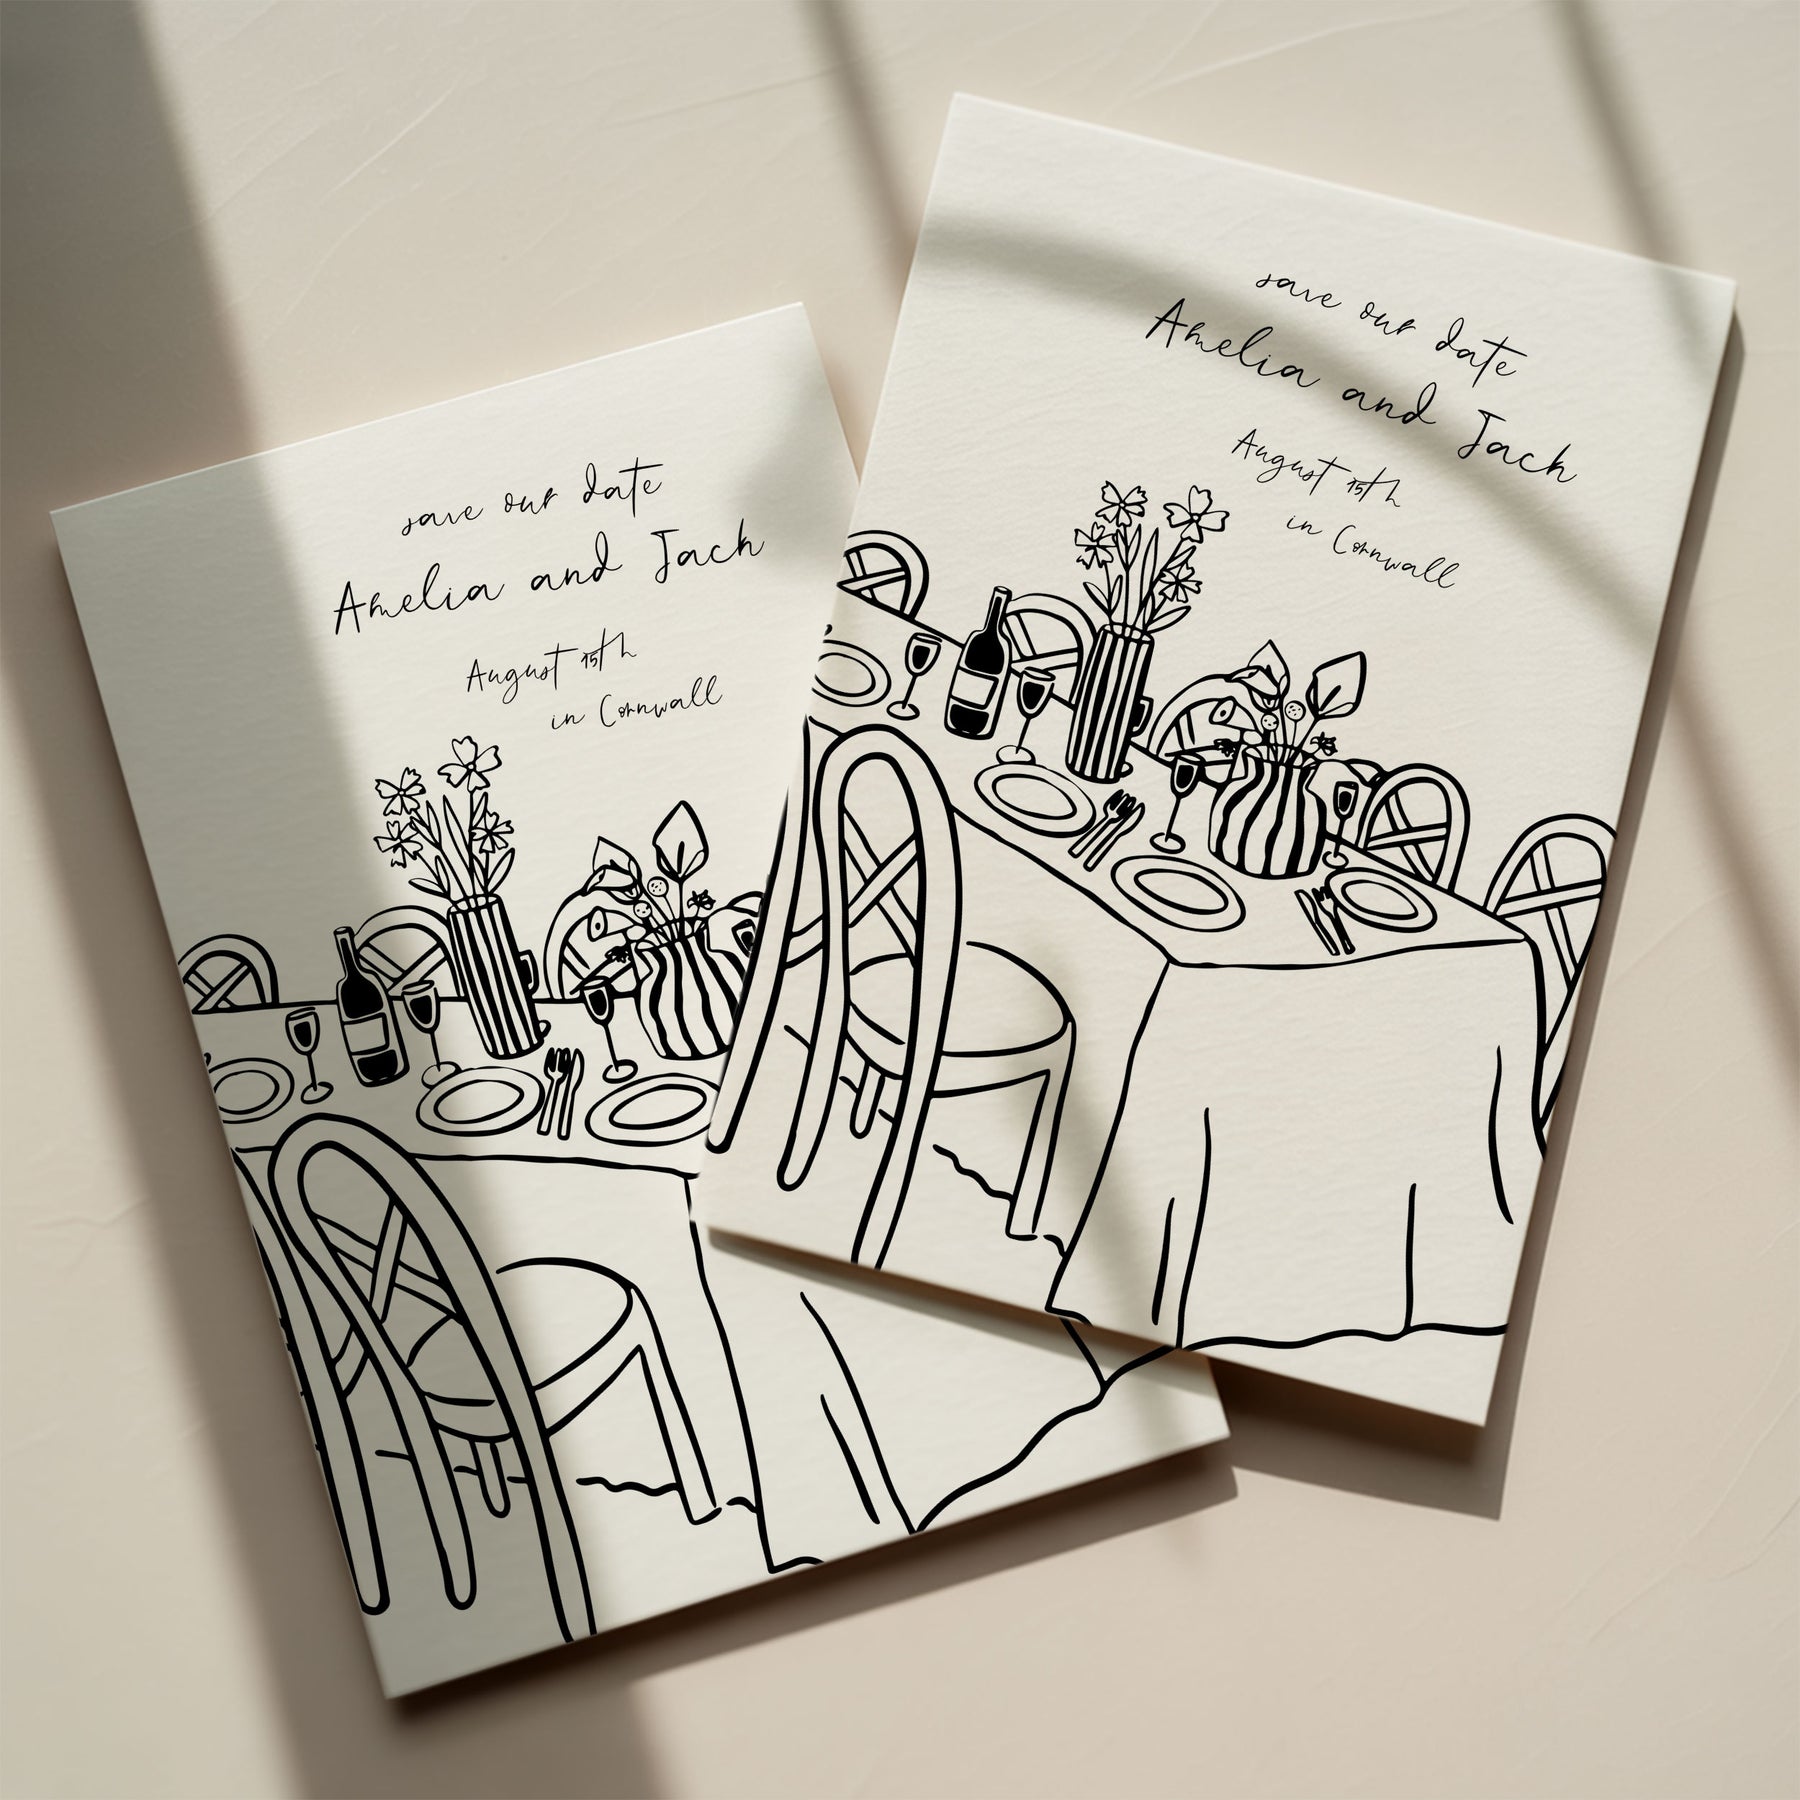 save our date
Amelia and Jack
August 15th
in Cornwall
save our date
Amelia and Jack
August 15th
in Cornwall